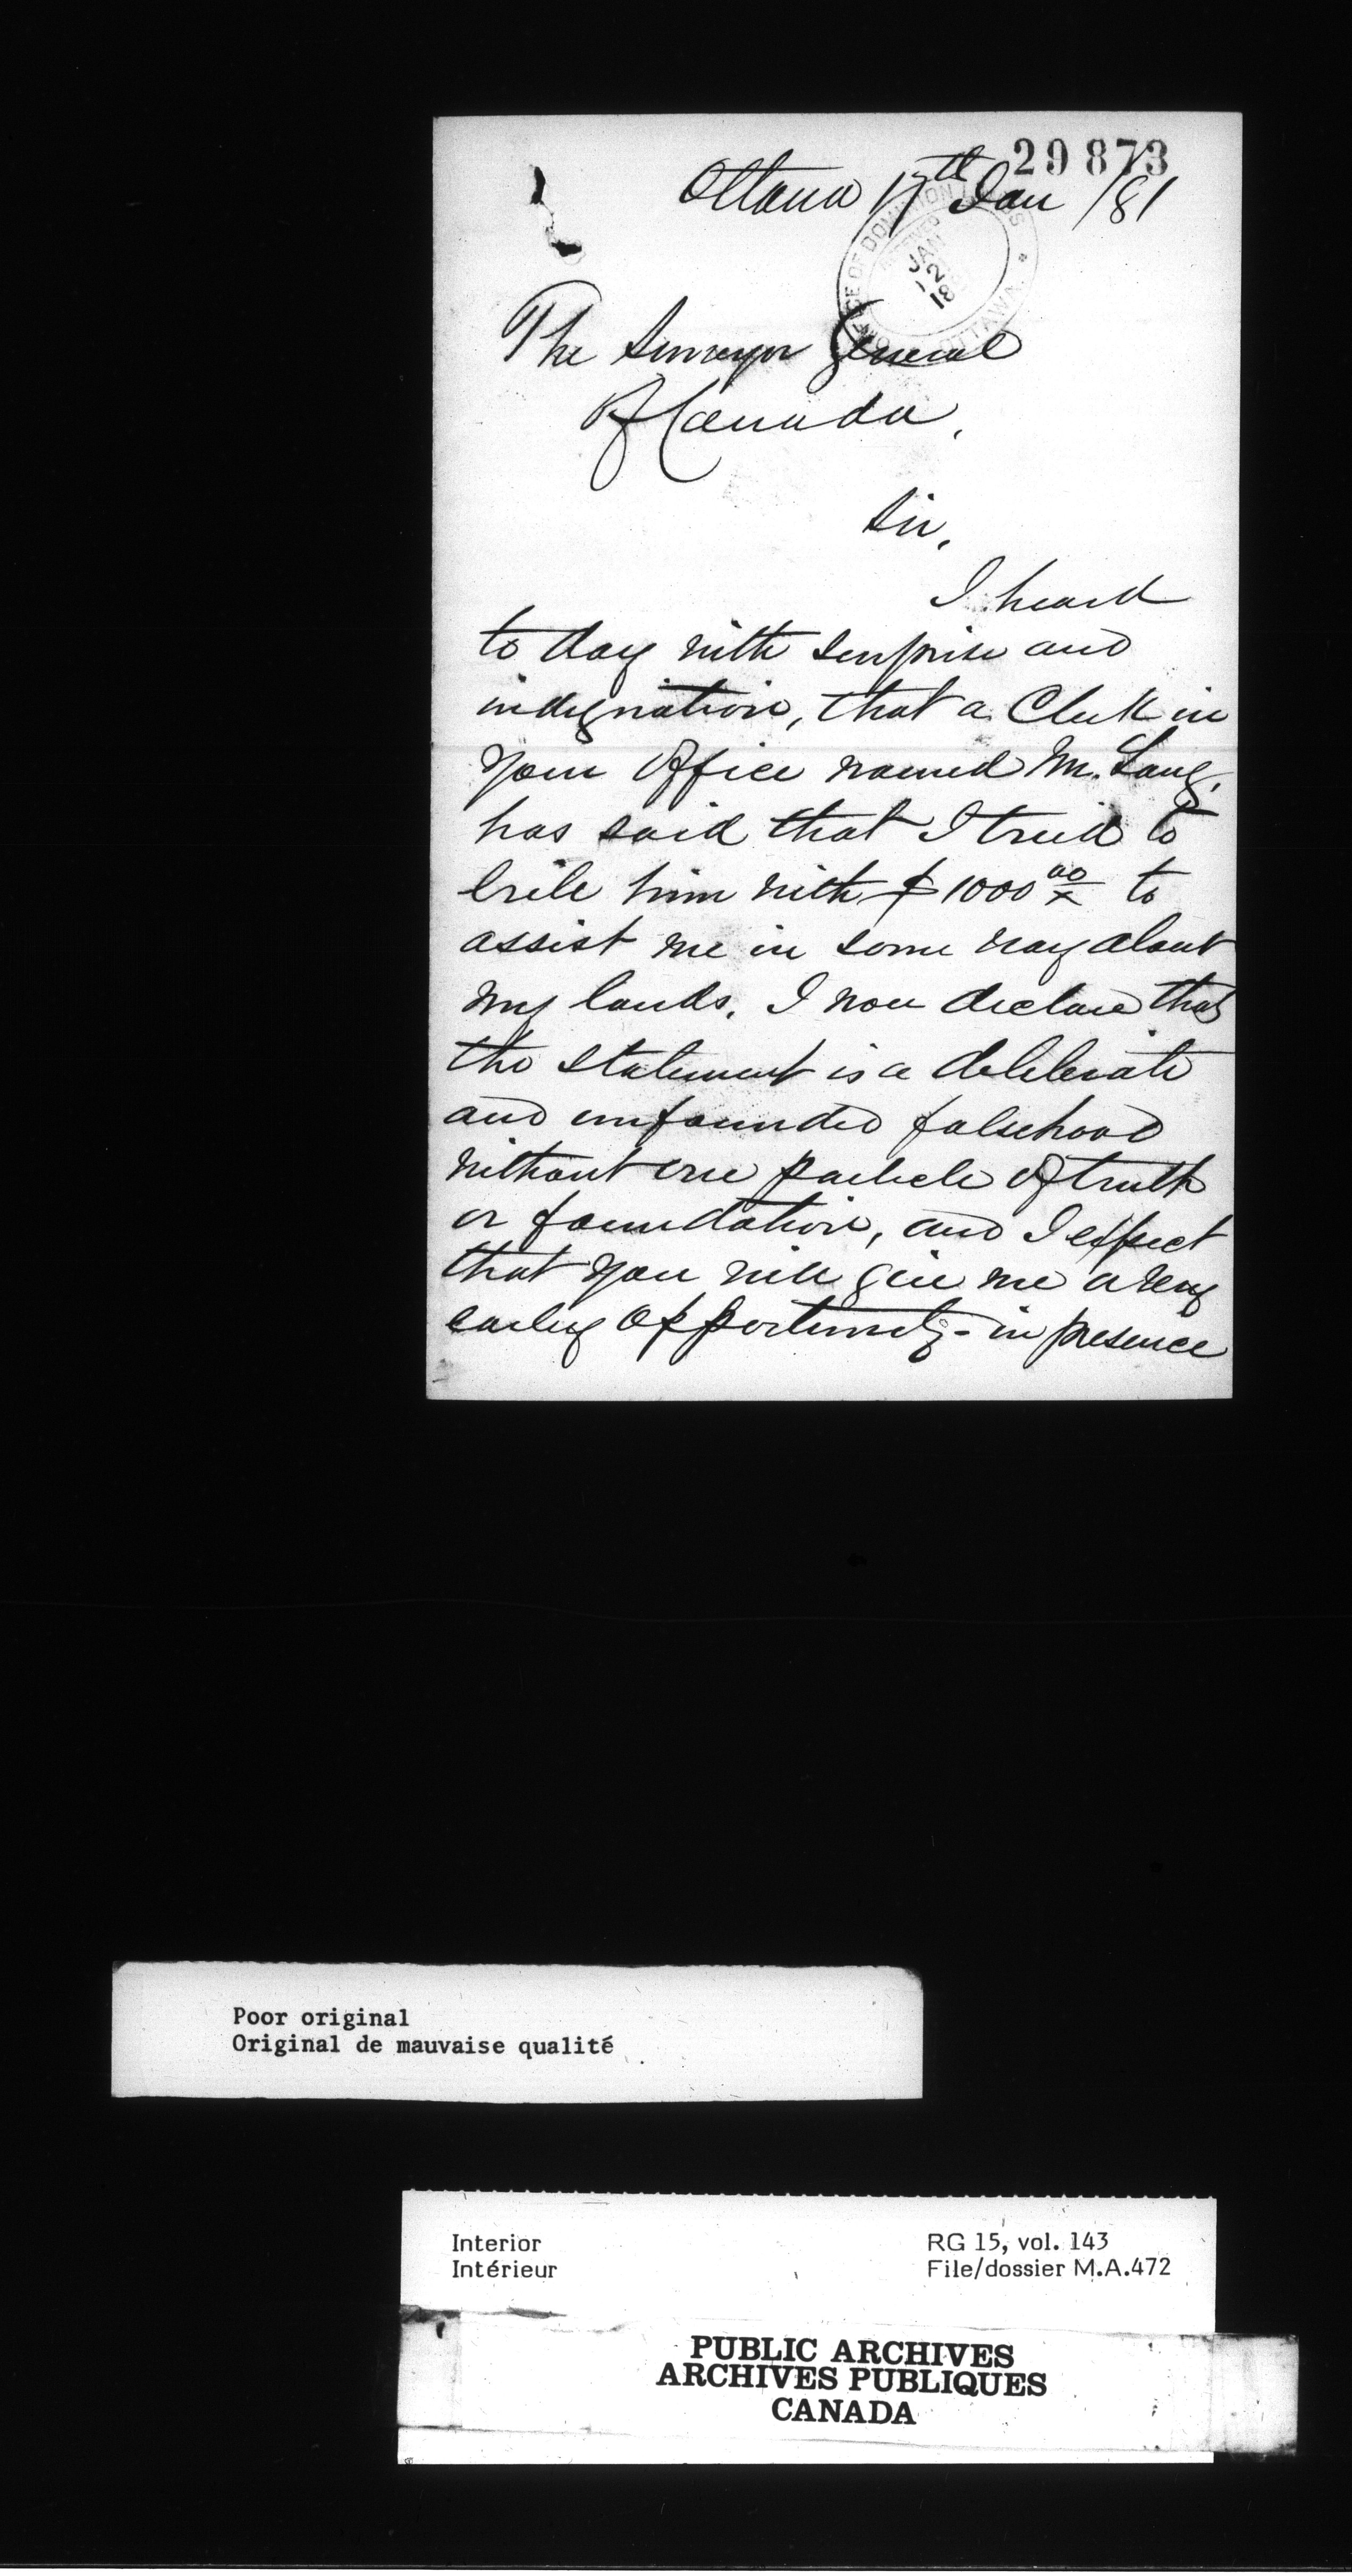 29873
Ottawa 17th Jan /81
OFFICE OF DOMINION LANDS
RECEIVED
JAN
12
18
OTTAWA
The Surveyor General
Of Canada,
Sir,
I heard
to day with surprise and
indignation, that a Clerk in
your Office named Mr. Lang,
has said that I tried to
bribe him with $1000 00/x to
assist me in some way about
my lands. I now declare that
the statement is a deliberate
and unfounded falsehood
without one particle of truth
or foundation, and I expect
that you will give me a very
early opportunity - in presence
Poor original
Original de mauvaise qualité
Interior
Intérieur
RG 15, vol. 143
File/dossier M.A.472
PUBLIC ARCHIVES
ARCHIVES PUBLIQUES
CANADA